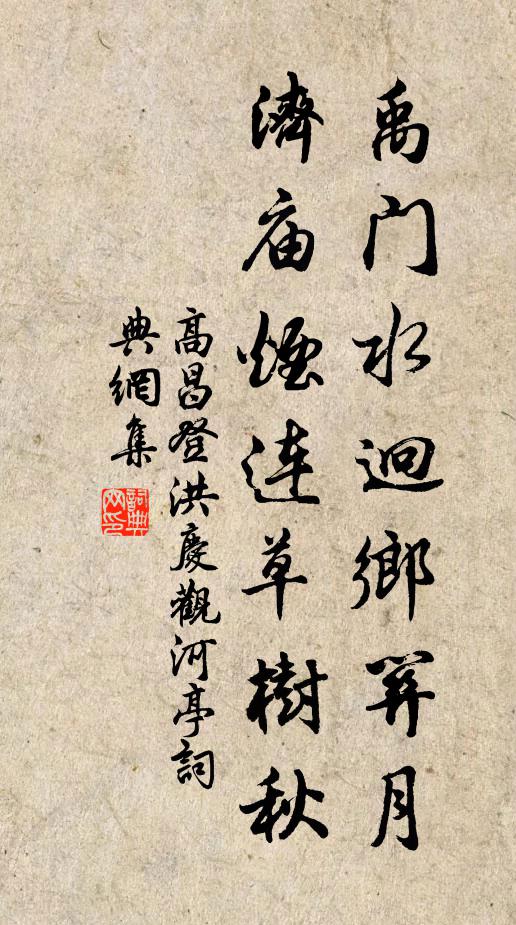 禹门水逈鄉関月
濟庙煙連草樹秋
高昌登洪慶觀河亭詞
典網集
詞典
网印